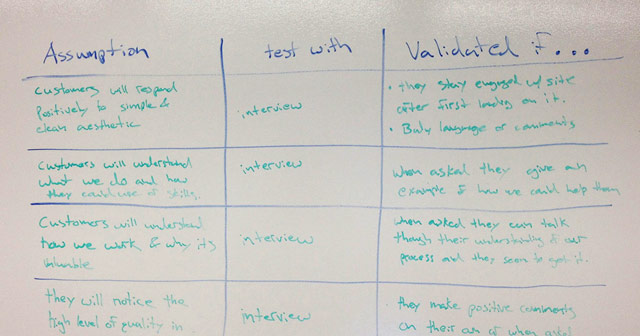 Assumption
test with
Validated if...
Customers will respond
positively to simple &
clean aesthetic
interview
• they stay engaged w/ site
after first landing on it.
• Body language or comments
Customers will understand
what we do and how
they could use of skills.
interview
when asked they give an
example of how we could help them
Customers will understand
how we work & why its
valuable
interview
when asked they can talk
though their understanding of our
process and they seem to get it.
they will notice the
high level of quality in
interview
• they make positive comments
on their own or when asked